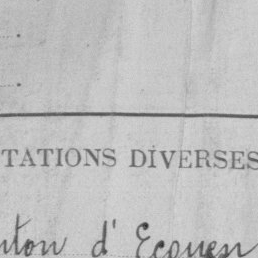 TATIONS DIVERSES
nton d' Ecouen